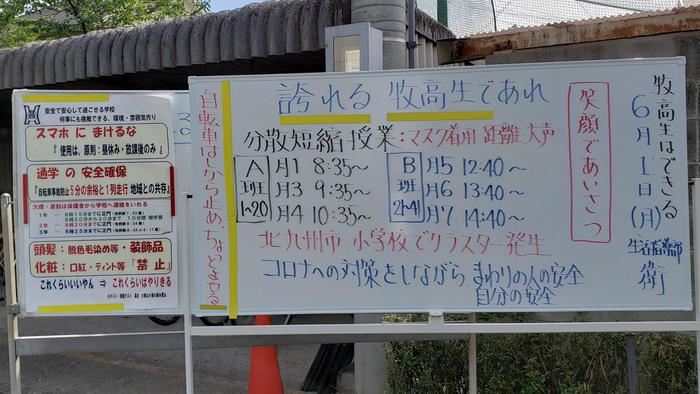 安全で安心して過ごせる学校
何事にも挑戦できる、環境・雰囲気作り
スマホ に まけるな
『 使用は、原則:昼休み・放課後のみ 』
通学 の 安全確保
『自転車事故防止5分の余裕と1列走行 地域との共存』
欠席・遅刻は保護者から学校へ連絡をいれる
頭髪:脱色毛染め等・装飾品
化粧:口紅・ティント等「 禁止 」
これくらいいいやん ⇒ これくらいはやりきる
自転車はしから止め、ちょいとさせる
誇れる 牧高生であれ
分散短縮授業:マスク着用 距離 大声
A班 1~20
月1 8:35~
月3 9:35~
月4 10:35~
B班 21~41
月5 12:40~
月6 13:40~
月7 14:40~
北九州市 小学校でクラスター発生
コロナへの対策をしながら、まわりの人の安全
自分の安全
笑顔であいさつ
牧高生はできる
6月1日(月)
生活指導部